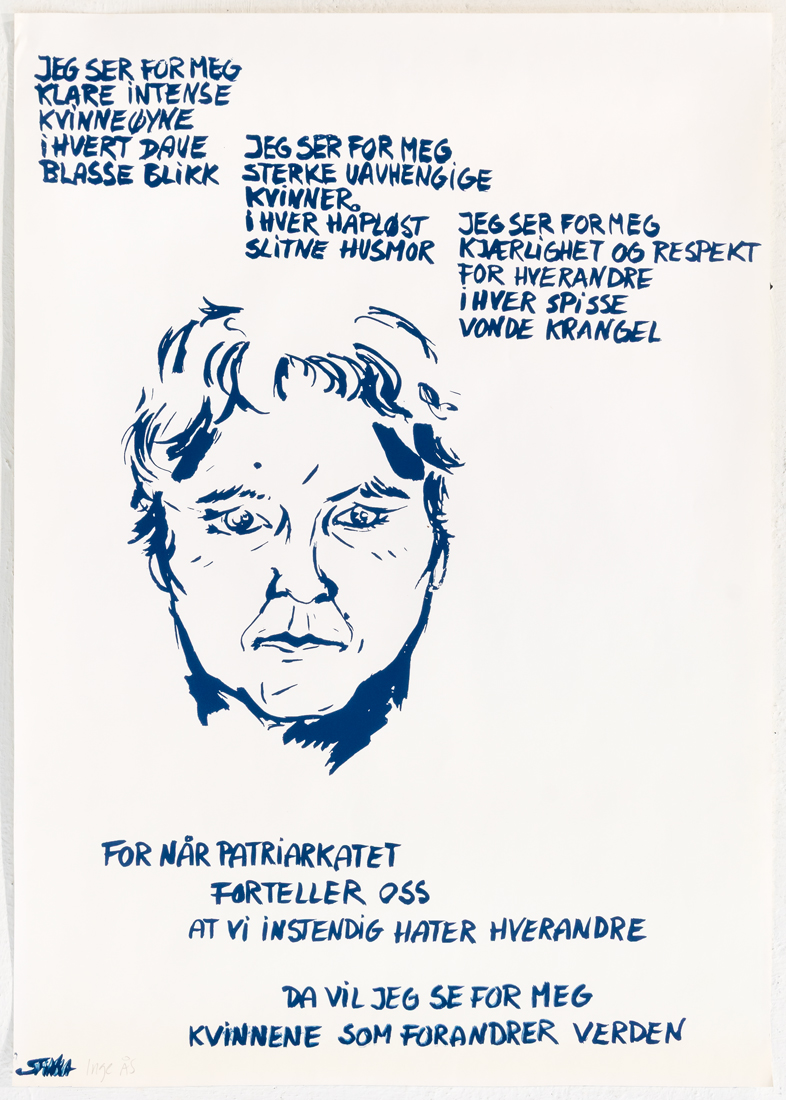 JEG SER FOR MEG
KLARE INTENSE
KVINNEØYNE
I HVERT DAUE
BLASSE BLIKK
JEG SER FOR MEG
STERKE UAVHENGIGE
KVINNER
I HVER HAPLØST
SLITNE HUSMOR
JEG SER FOR MEG
KJÆRLIGHET OG RESPEKT
FOR HVERANDRE
I HVER SPISSE
VONDE KRANGEL
FOR NÅR PATRIARKATET
FORTELLER OSS
AT VI INSTENDIG HATER HVERANDRE
DA VIL JEG SE FOR MEG
KVINNENE SOM FORANDRER VERDEN
Inge ÅS